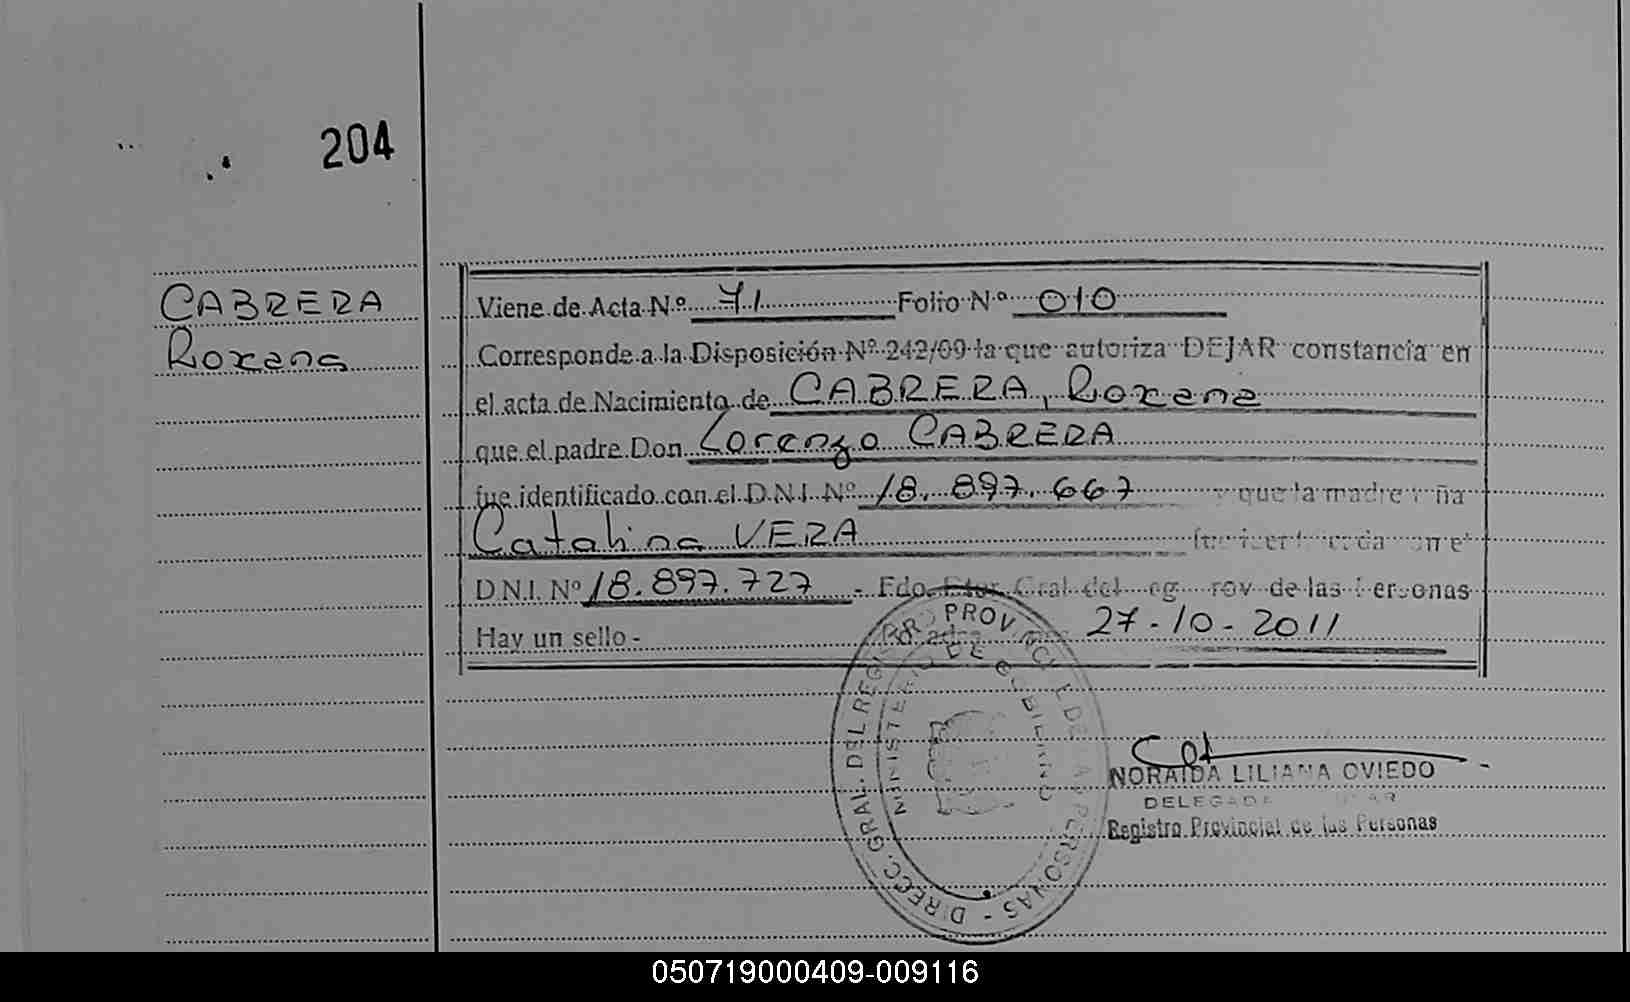 204
CABRERA
Roxana
Viene de Acta Nº 71 Folio Nº 010
Corresponde a la Disposición Nº 242/09 la que autoriza DEJAR constancia en
el acta de Nacimiento de CABRERA, Roxana
que el padre Don Lorenzo CABRERA
fue identificado con el D.N.I. Nº 18.897.667 y que la madre
Catalina VERA
D.N.I. Nº 18.897.727 - Fdo. Gral del de las Personas
Hay un sello - 27-10-2011
DIRECC. GRAL. DEL REGISTRO PROVINCIAL DE LAS PERSONAS -
MINISTERIO DE GOBIERNO
NORAIDA LILIANA OVIEDO
DELEGADA
Registro Provincial de las Personas
050719000409-009116